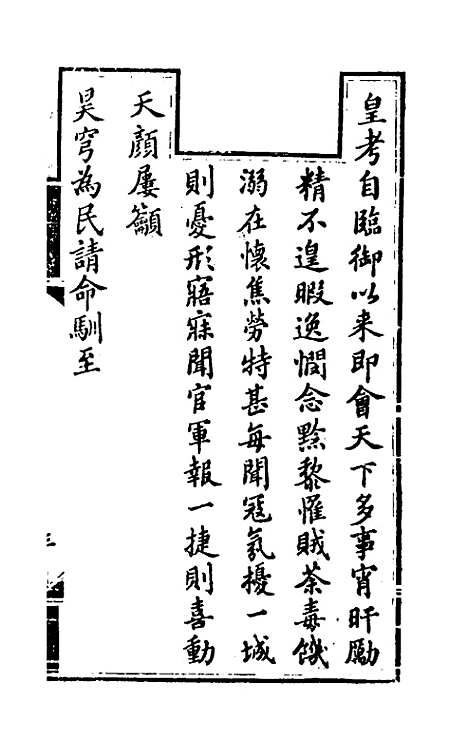 皇考自臨御以来即會天下多事宵旰勵
精不遑暇逸憫念黔黎懼賊荼毒饑
溺在懷焦勞特甚每聞寇氛擾一城
則憂形寤寐聞官軍報一捷則喜動
天顏屢籲
昊穹為民請命馴至